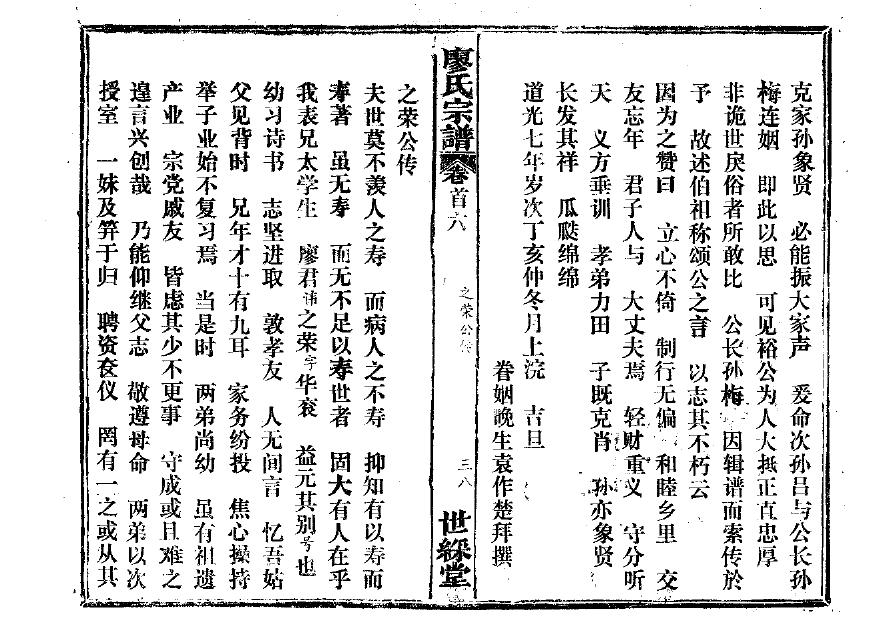 克家孙象贤　必能振大家声　爰命次孙吕与公长孙
梅连姻　即此以思　可见裕公为人大抵正直忠厚
非诡世戾俗者所敢比　公长孙梅　因辑谱而索传於
予　故述伯祖称颂公之言　以志其不朽云
因为之赞曰　立心不倚　制行无偏　和睦乡里　交
友忘年　君子人与　大丈夫焉　轻财重义　守分听
天　义方垂训　孝弟力田　子既克肖　孙亦象贤
长发其祥　瓜瓞绵绵
道光七年岁次丁亥仲冬月上浣　吉旦
眷姻晚生袁作楚拜撰
廖氏宗譜 卷首六 之荣公传 三八 世綵堂
之荣公传
夫世莫不羡人之寿　而病人之不寿　抑知有以寿而
寿著　虽无寿　而无不足以寿世者　固大有人在乎
我表兄太学生　廖君讳之荣字华衮　益元其别号也
幼习诗书　志坚进取　敦孝友　人无间言　忆吾姑
父见背时　兄年才十有九耳　家务纷投　焦心操持
举子业始不复习焉　当是时　两弟尚幼　虽有祖遗
产业　宗党戚友　皆虑其少不更事　守成或且难之
遑言兴创哉　乃能仰继父志　敬遵母命　两弟以次
授室　一妹及笄于归　聘资奁仪　罔有一之或从其